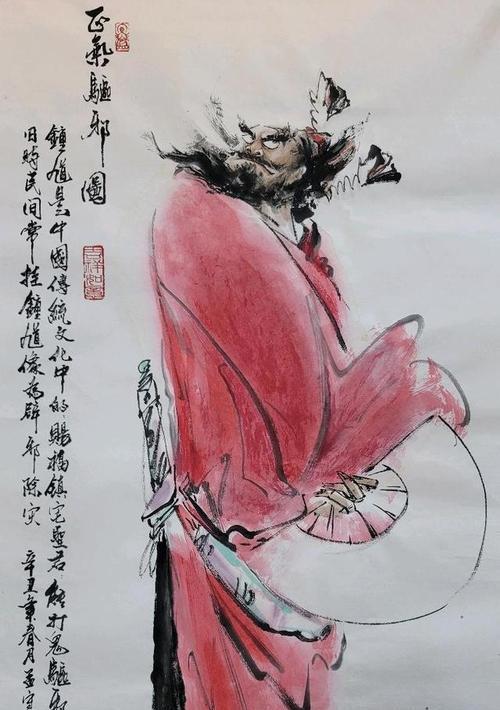 正氣驅邪圖
吉祥如意
鍾馗是中國傳統文化中的賜福鎮宅聖君 能打鬼驅邪
旧時民間常挂鍾馗像為辟邪除灾 辛丑年春月